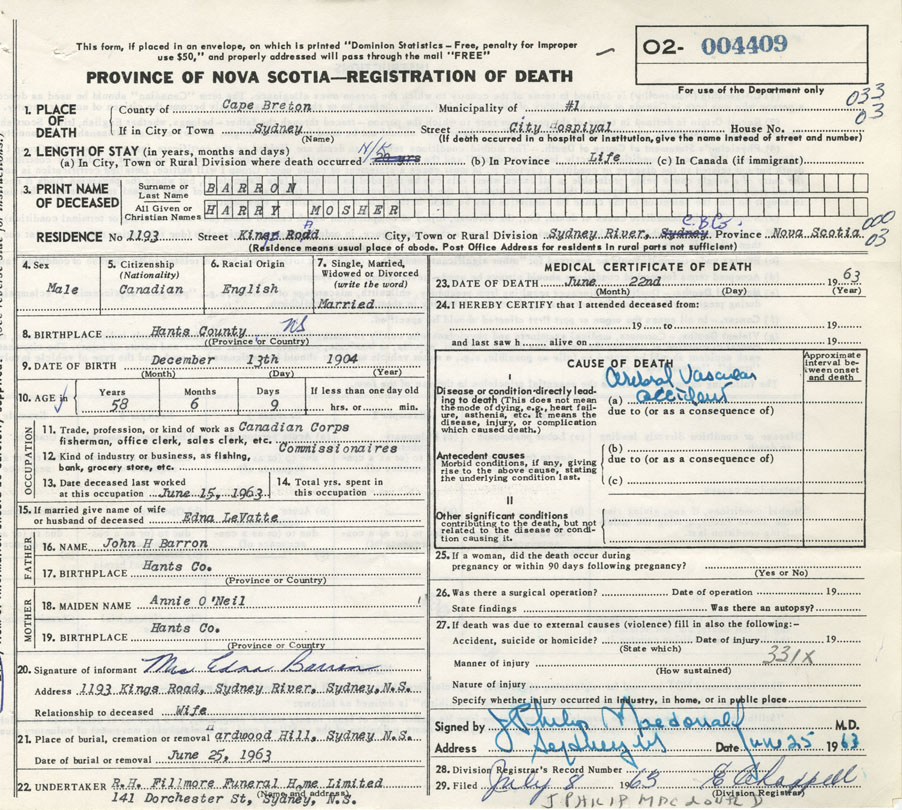 This form, if placed in an envelope, on which is printed "Dominion Statistics – Free, penalty for improper
use $50," and properly addressed will pass through the mail "FREE"
O2- 004409
For use of the Department only
PROVINCE OF NOVA SCOTIA—REGISTRATION OF DEATH
033
03
1. PLACE OF DEATH
County of Cape Breton Municipality of #1
If in City or Town Sydney Street City Hospiyal House No.
(Name) (If death occurred in a hospital or institution, give the name instead of street and number)
2. LENGTH OF STAY (in years, months and days)
(a) In City, Town or Rural Division where death occurred N/S (b) In Province Life (c) In Canada (if immigrant)
3. PRINT NAME OF DECEASED
Surname or Last Name BARRON
All Given or Christian Names HARRY MOSHER
RESIDENCE No 1193 Street Kings Road City, Town or Rural Division Sydney River, Sydney C.B.Co. Province Nova Scotia
000
03
(Residence means usual place of abode. Post Office Address for residents in rural parts not sufficient)
4. Sex
Male
5. Citizenship (Nationality)
Canadian
6. Racial Origin
English
7. Single, Married, Widowed or Divorced (write the word)
Married
8. BIRTHPLACE Hants County NS
(Province or Country)
9. DATE OF BIRTH December 13th 1904
(Month) (Day) (Year)
10. AGE in Years 58 Months 6 Days 9 If less than one day old hrs. or min.
OCCUPATION
11. Trade, profession, or kind of work as Canadian Corps
fisherman, office clerk, sales clerk, etc.
Commissionaires
12. Kind of industry or business, as fishing,
bank, grocery store, etc.
13. Date deceased last worked
at this occupation June 15, 1963
14. Total yrs. spent in
this occupation
15. If married give name of wife
or husband of deceased Edna LeVatte
FATHER
16. NAME John H Barron
17. BIRTHPLACE Hants Co.
(Province or Country)
MOTHER
18. MAIDEN NAME Annie O'Neil
19. BIRTHPLACE Hants Co.
(Province or Country)
20. Signature of informant Mrs Edna Barron
Address 1193 Kings Road, Sydney River, Sydney, N.S.
Relationship to deceased Wife
21. Place of burial, cremation or removal Hardwood Hill, Sydney N.S.
Date of burial or removal June 25, 1963
22. UNDERTAKER R.H. Fillmore Funeral Home Limited
(Name and address)
141 Dorchester St, Sydney, N.S.
MEDICAL CERTIFICATE OF DEATH
23. DATE OF DEATH June 22nd 1963
(Month) (Day) (Year)
24. I HEREBY CERTIFY that I attended deceased from:
19 to 19
and last saw h alive on 19
CAUSE OF DEATH
Approximate interval between onset and death
I
Disease or condition directly leading to death (This does not mean the mode of dying, e.g., heart failure, asthenia, etc. It means the disease, injury, or complication which caused death.)
(a) Cerebral Vascular accident
due to (or as a consequence of)
Antecedent causes
Morbid conditions, if any, giving rise to the above cause, stating the underlying condition last.
(b)
due to (or as a consequence of)
(c)
II
Other significant conditions
contributing to the death, but not related to the disease or condition causing it.
25. If a woman, did the death occur during
pregnancy or within 90 days following pregnancy?
(Yes or No)
26. Was there a surgical operation? Date of operation 19
State findings Was there an autopsy?
27. If death was due to external causes (violence) fill in also the following:–
Accident, suicide or homicide? Date of injury 19
(State which)
331X
Manner of injury
(How sustained)
Nature of injury
Specify whether injury occurred in industry, in home, or in public place
Signed by J Philip Macdonald M.D.
Address Sydney NS Date June 25 1963
28. Division Registrar's Record Number
29. Filed July 8 1963
(Division Registrar)
J PHILIP MACDONALD